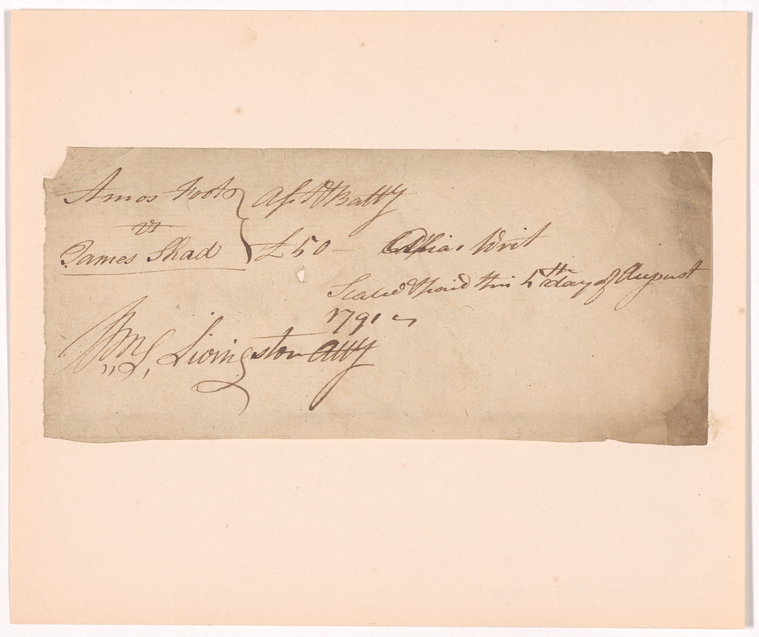 Amos Foot } Asst & Batty
vs
James Shad } £50 - Alias Writ
Sealed & paid this 5th day of August
1791
Wm S. Livingston Atty